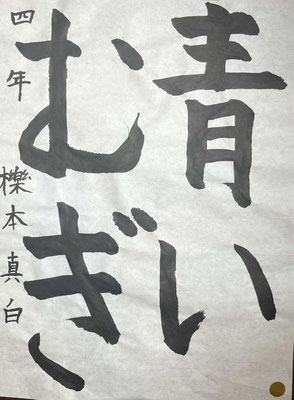 青い
むぎ
四年 櫟本真白